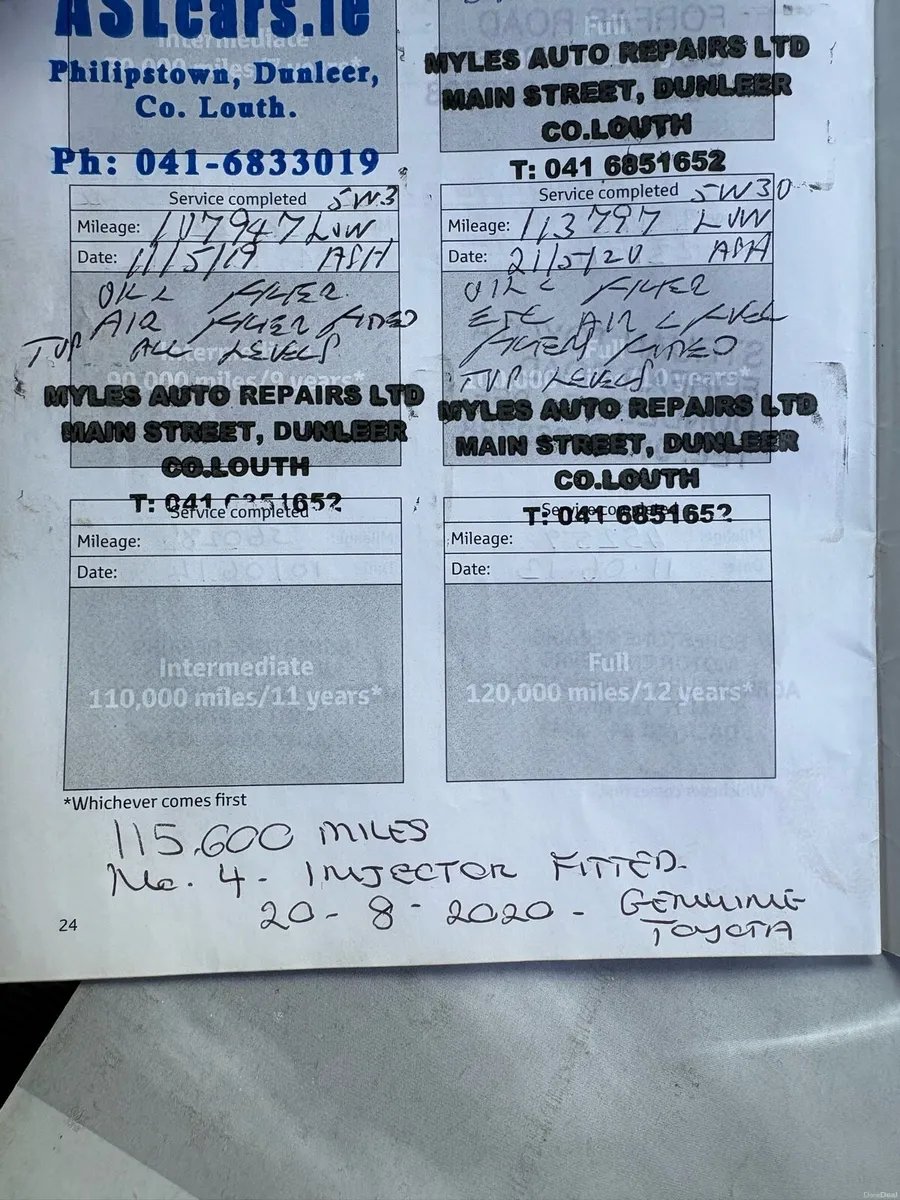 ASLcars.ie
Intermediate
Philipstown, Dunleer,
Co. Louth.
Ph: 041-6833019
Full
MYLES AUTO REPAIRS LTD
MAIN STREET, DUNLEER
CO.LOUTH
T: 041 6851652
Service completed 5W3
Mileage: 107947 LOW
Date: 11/5/19 ASH
OIL & FILTER
AIR FILTER FITTED
TOP ALL LEVELS
90,000 miles/9 years*
MYLES AUTO REPAIRS LTD
MAIN STREET, DUNLEER
CO.LOUTH
T: 041 6851652
Service completed 5W30
Mileage: 113797 LOW
Date: 21/5/20 ASH
OIL & FILTER
AIR & FUEL
FILTERS FITTED
TOP LEVELS
MYLES AUTO REPAIRS LTD
MAIN STREET, DUNLEER
CO.LOUTH
T: 041 6851652
Service completed
Mileage:
Date:
Intermediate
110,000 miles/11 years*
Service completed
Mileage:
Date:
Full
120,000 miles/12 years*
*Whichever comes first
115,600 MILES
No. 4 - INJECTOR FITTED.
20-8-2020 - GENUINE
TOYOTA
24
DoneDeal